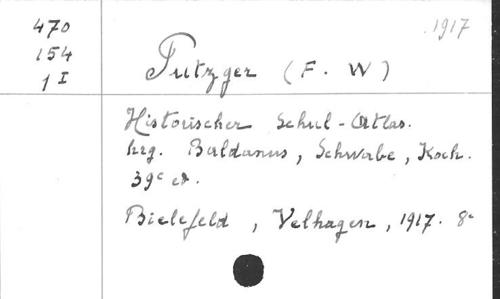 470
154
1 I
1917
Putzger (F. W)
Historischer Schul-Atlas.
hrg. Baldamus, Schwabe, Koch.
39e ed.
Bielefeld, Velhagen, 1917. 8°